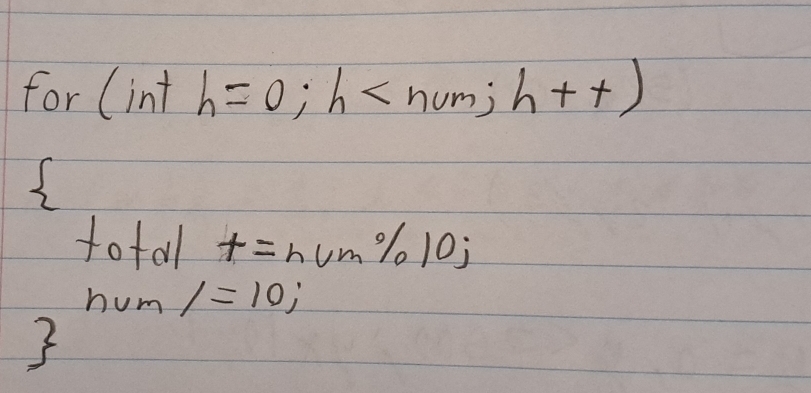 for (int h=0; h<num; h++)
{
total +=num%10;
num /=10;
}